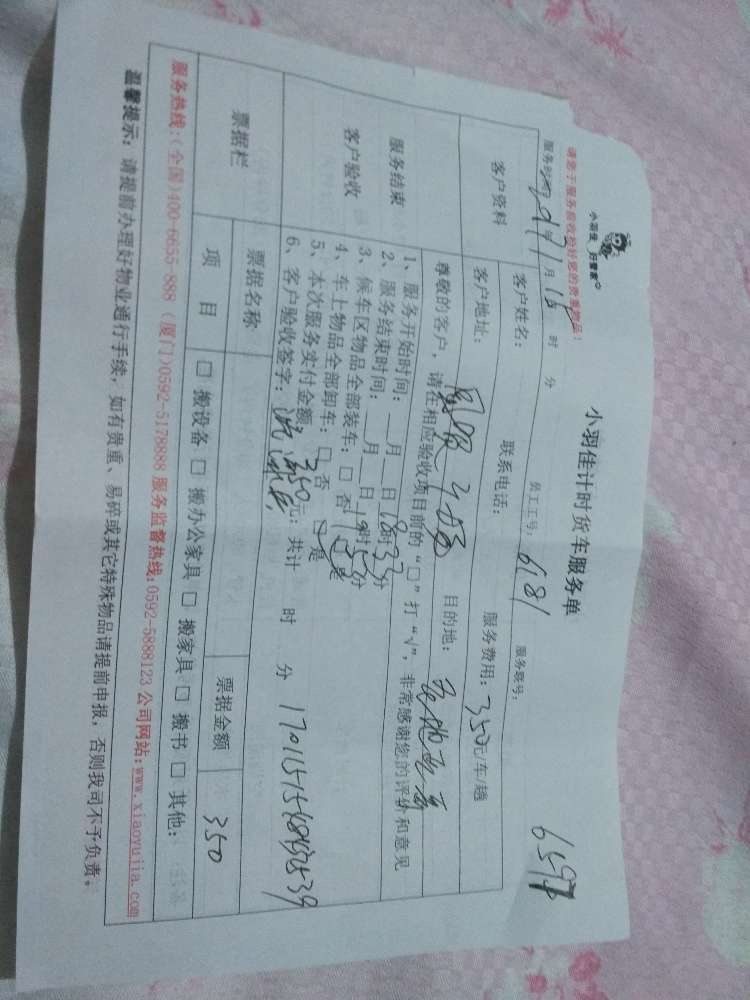 小羽佳 好管家
小羽佳计时货车服务单
请您于服务前收检好您的贵重物品!
服务时间: 年 月 时 分 员工工号: 6181 服务账号:
客户资料
客户姓名: 联系电话: 服务费用: 350元/车/趟
客户地址: 目的地:
尊敬的客户,请在相应验收项目前的“□”打“√”,非常感谢您的评价和意见
服务结束
客户验收
1、服务开始时间:__月__日18时33分
2、服务结束时间:__月__日19时55分
3、候车区物品全部装车:□ 否 是
4、车上物品全部卸车:□ 否 □ 是
5、本次服务实付金额:350元;共计 时 分
6、客户验收签字:
票据栏
票据名称 票据金额 350
项 目 □ 搬设备 □ 搬办公家具 □ 搬家具 □ 搬书 □ 其他:
服务热线:(全国)400-6655-888 (厦门)0592-5178888 服务监督热线:0592-5888123 公司网站:www.xiaoyujia.com
温馨提示:请提前办理好物业通行手续,如有贵重、易碎或其它特殊物品请提前申报,否则我司不予负责。